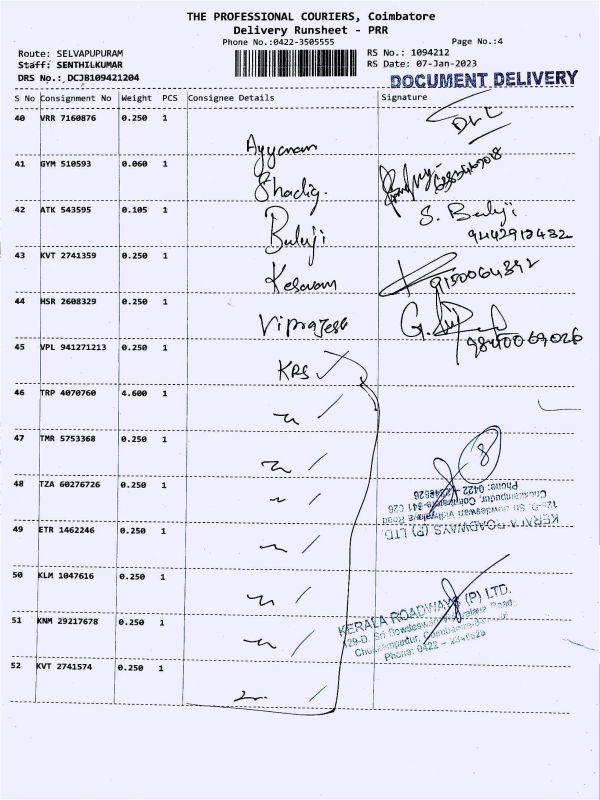 THE PROFESSIONAL COURIERS, Coimbatore
Delivery Runsheet - PRR
Phone No.:0422-3505555
Page No.:4
Route: SELVAPUPURAM
RS No.: 1094212
Staff: SENTHILKUMAR
RS Date: 07-Jan-2023
DRS No.: DCJB109421204
DOCUMENT DELIVERY
S No Consignment No Weight PCS Consignee Details Signature
40 VRR 7160876 0.250 1
Ayyanar
41 GYM 510593 0.060 1
Shadiq.
42 ATK 543595 0.105 1 S. Balaji
Balaji 9442912432
43 KVT 2741359 0.250 1
Kesavan 9150064392
44 HSR 2608329 0.250 1
Viprajesh G.
45 VPL 941271213 0.250 1
KRS
46 TRP 4070760 4.600 1
47 TMR 5753368 0.250 1
8
48 TZA 60276726 0.250 1
KERALA ROADWAYS (P) LTD.
12-D, Sri Gowdeswari Vidhyalaya Road
Chokkampudur, Coimbatore-641 026
Phone: 0422 - 2346526
49 ETR 1462246 0.250 1
50 KLM 1047616 0.250 1
51 KNM 29217678 0.250 1
KERALA ROADWAYS (P) LTD.
Phone: 0422 - 2346526
52 KVT 2741574 0.250 1